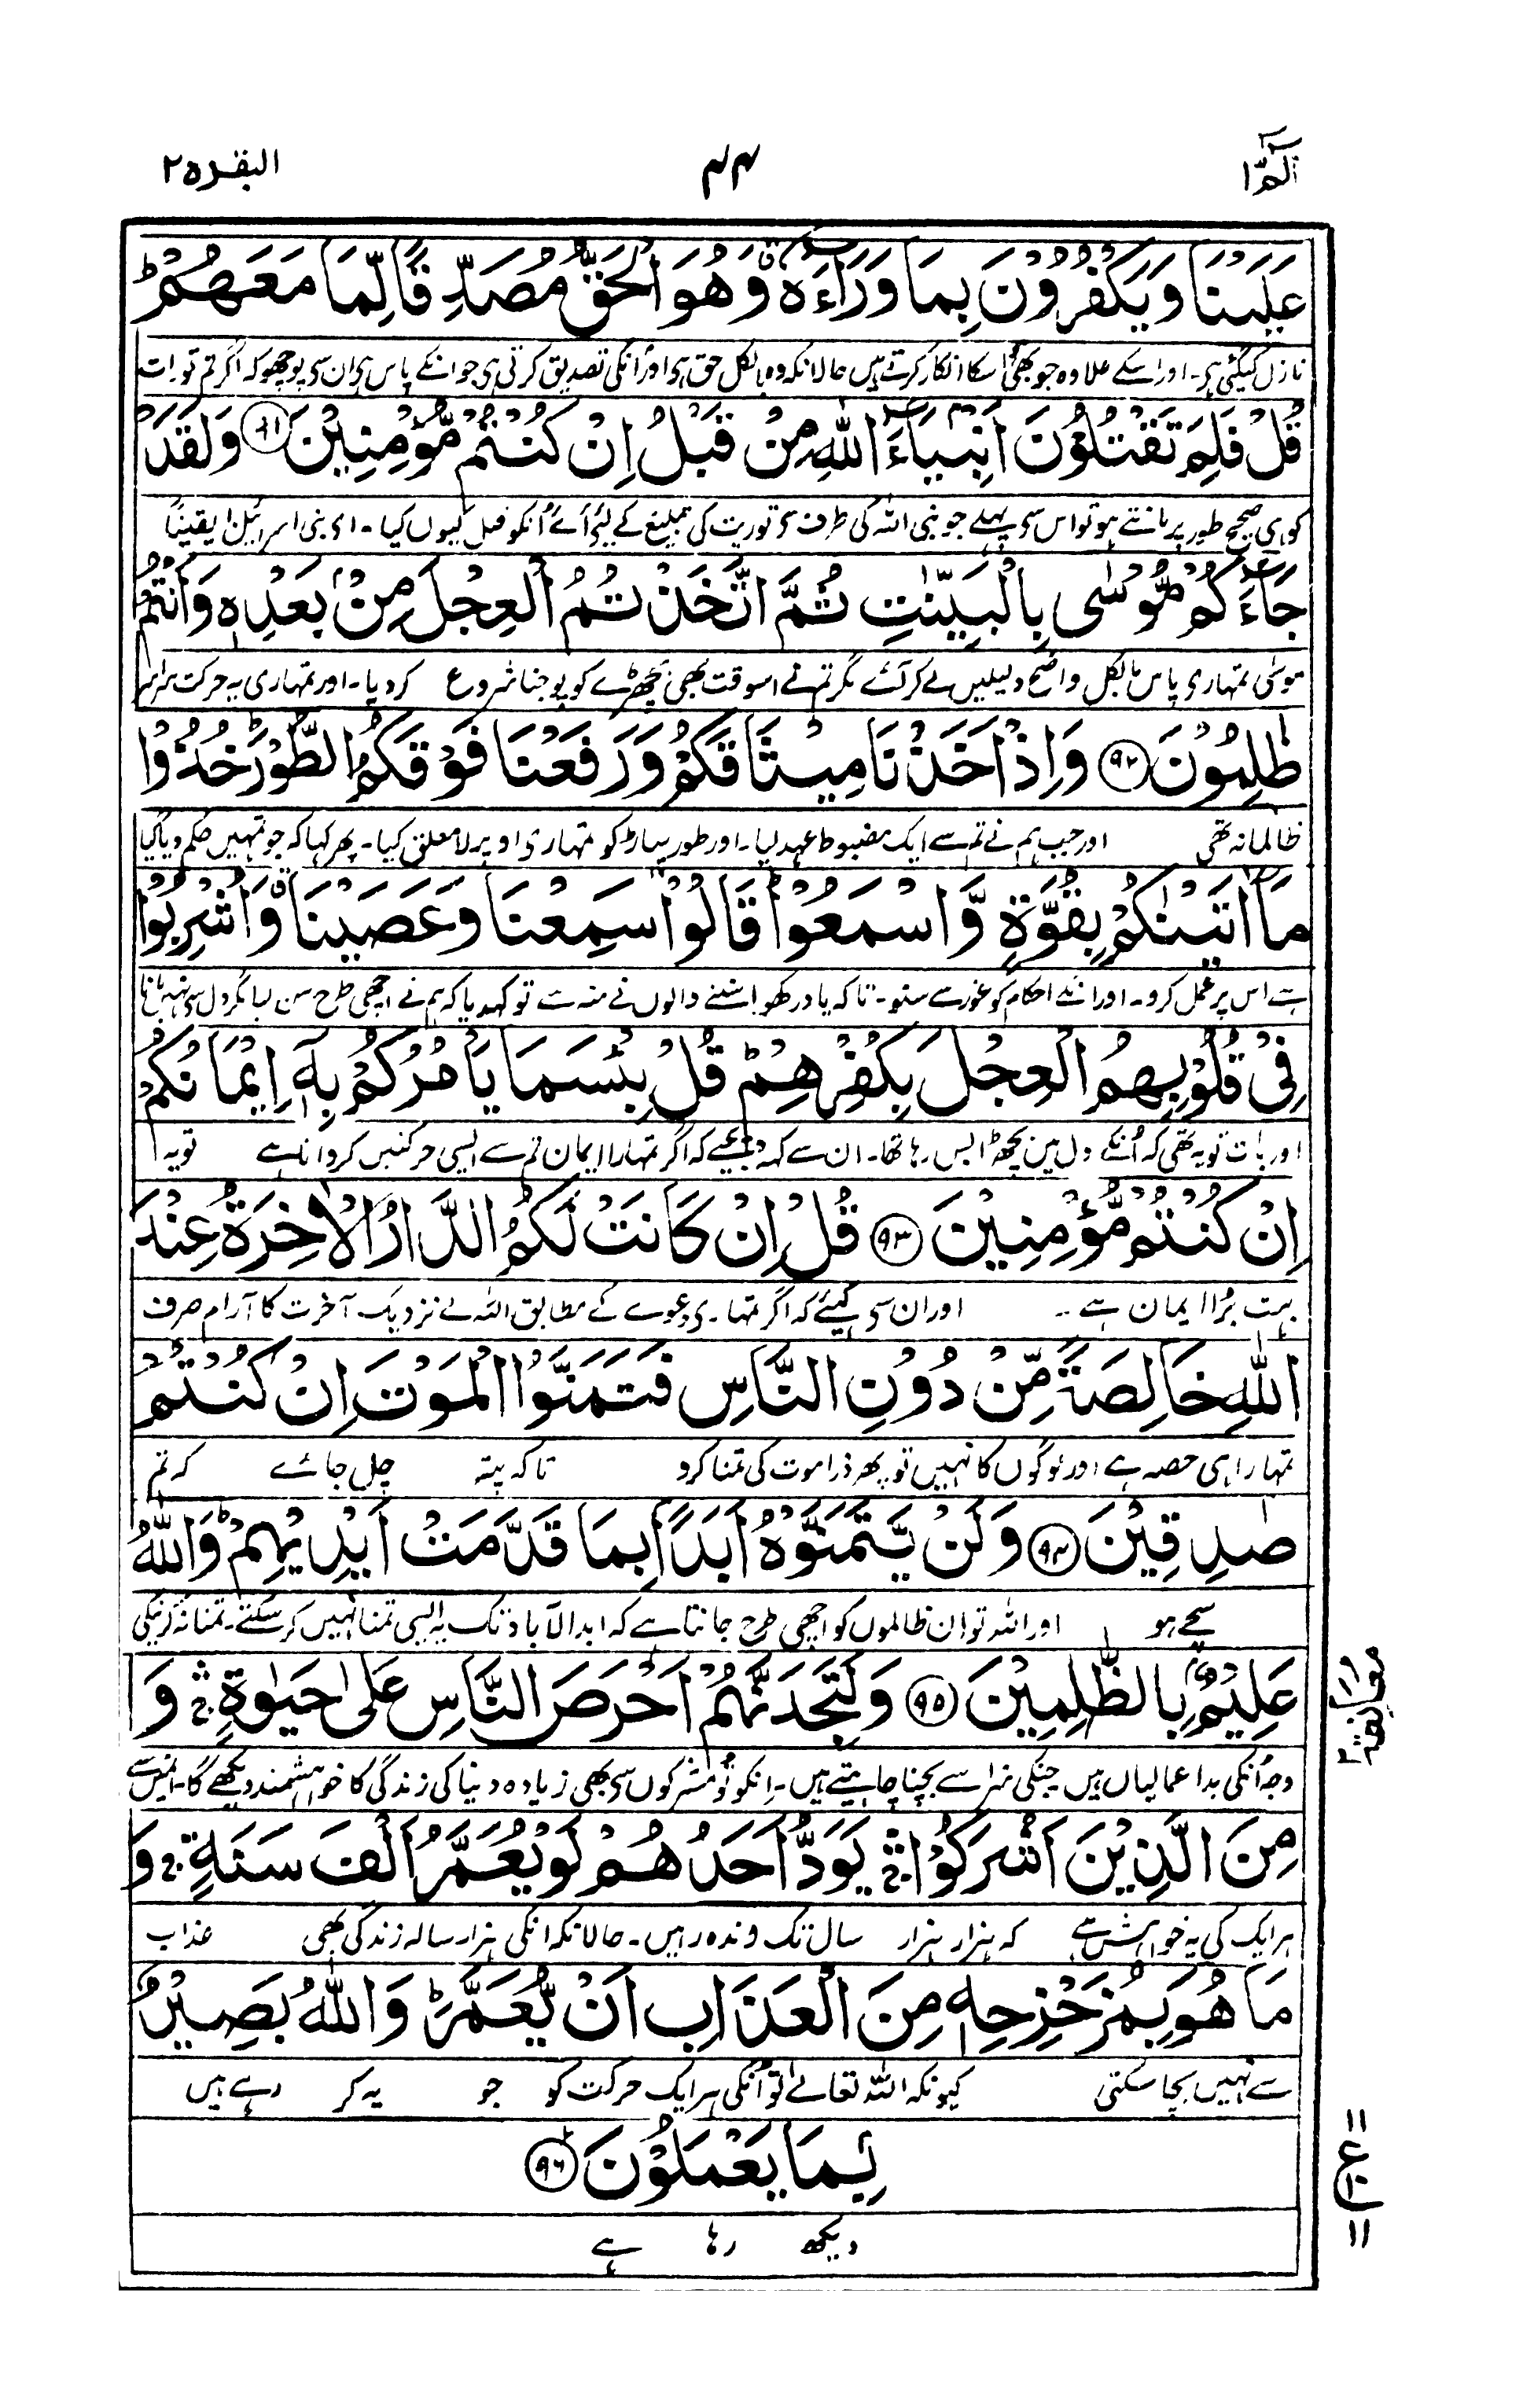 الٓمّٓ ١
٤٤
البقره ٢
عَلَيْنَا وَيَكْفُرُوْنَ بِمَا وَرَآءَهٗ وَهُوَ الْحَقُّ مُصَدِّقًا لِّمَا مَعَهُمْ ؕ
نازل کیگئی ہی۔ اور اسکے علاوہ جو بھی اسکا انکار کرتے ہیں حالانکہ وہ بالکل حق ہی اور انکی تصدیق کرتی ہی جو انکے پاس ہی ان سی پوچھو کہ اگر تم تورات
قُلْ فَلِمَ تَقْتُلُوْنَ اَنْۢبِيَآءَ اللّٰهِ مِنْ قَبْلُ اِنْ كُنْتُمْ مُّؤْمِنِيْنَ ٩١ وَلَقَدْ
کو ہی صحیح طور پر مانتے ہو تو اس سی پہلے جو نبی اللہ کی طرف سی توریت کی تبلیغ کے لیئے آئے اُنکو قتل کیوں کیا۔ ای بنی اسرائیل یقیناً
جَآءَكُمْ مُّوْسٰى بِالْبَيِّنٰتِ ثُمَّ اتَّخَذْتُمُ الْعِجْلَ مِنْۢ بَعْدِهٖ وَاَنْتُمْ
موسٰی تمہاری پاس بالکل واضح دلیلیں لے کر آئے مگر تم نے اسوقت بھی بچھڑے کو پوجنا شروع کر دیا۔ اور تمہاری یہ حرکت سراسر
ظٰلِمُوْنَ ٩٢ وَاِذْ اَخَذْنَا مِيْثَاقَكُمْ وَرَفَعْنَا فَوْقَكُمُ الطُّوْرَ ؕ خُذُوْا
ظالمانہ تھی اور جب ہم نے تم سے ایک مضبوط عہد لیا۔ اور طور پہاڑ کو تمہاری اوپر لا معلق کیا۔ پھر کہا کہ جو تمہیں حکم دیا گیا
مَآ اٰتَيْنٰكُمْ بِقُوَّةٍ وَّاسْمَعُوْا ؕ قَالُوْا سَمِعْنَا وَعَصَيْنَا ۗ وَاُشْرِبُوْا
ہے اس پر عمل کرو۔ اور احکام کو غور سے سنو۔ تاکہ یاد رکھو سننے والوں نے منہ سے تو کہدیا کہ ہم نے اچھی طرح سن لیا مگر دل سی نہیں مانا
فِيْ قُلُوْبِهِمُ الْعِجْلَ بِكُفْرِهِمْ ؕ قُلْ بِئْسَمَا يَاْمُرُكُمْ بِهٖٓ اِيْمَانُكُمْ
اور بات تو یہ تھی کہ اُنکے دل میں بچھڑا بس رہا تھا۔ ان سے کہہ دیجیے کہ اگر تمہارا ایمان تم سے ایسی حرکتیں کرواتا ہے تو یہ
اِنْ كُنْتُمْ مُّؤْمِنِيْنَ ٩٣ قُلْ اِنْ كَانَتْ لَكُمُ الدَّارُ الْاٰخِرَةُ عِنْدَ
بہت بُرا ایمان ہے۔ اور ان سی کہئے کہ اگر تمہاری دعوے کے مطابق اللہ کے نزدیک آخرت کا آرام صرف
اللّٰهِ خَالِصَةً مِّنْ دُوْنِ النَّاسِ فَتَمَنَّوُا الْمَوْتَ اِنْ كُنْتُمْ
تمہارا ہی حصہ ہے اور لوگوں کا نہیں تو پھر ذرا موت کی تمنا کرو تاکہ پتہ چل جائے کہ تم
صٰدِقِيْنَ ٩٤ وَلَنْ يَّتَمَنَّوْهُ اَبَدًۢا بِمَا قَدَّمَتْ اَيْدِيْهِمْ ؕ وَاللّٰهُ
سچے ہو اور اللہ تو ان ظالموں کو اچھی طرح جانتا ہے کہ ابدالآباد تک یہ ایسی تمنا نہیں کر سکتے۔ تمنا نہ کرنیکی
عَلِيْمٌۢ بِالظّٰلِمِيْنَ ٩٥ وَلَتَجِدَنَّهُمْ اَحْرَصَ النَّاسِ عَلٰى حَيٰوةٍ ۛۚ وَ
وجہ اُنکی بداعمالیاں ہیں جنکی سزا سے بچنا چاہتے ہیں۔ اِنکو تو مشرکوں سی بھی زیادہ دنیا کی زندگی کا خواہشمند دیکھے گا۔ انمیں سے
مِنَ الَّذِيْنَ اَشْرَكُوْا ۛۚ يَوَدُّ اَحَدُهُمْ لَوْ يُعَمَّرُ اَلْفَ سَنَةٍ ۚ وَ
ہر ایک کی یہ خواہش ہے کہ ہزار ہزار سال تک وندہ رہیں۔ حالانکہ انکی ہزار سالہ زندگی بھی عذاب
مَا هُوَ بِمُزَحْزِحِهٖ مِنَ الْعَذَابِ اَنْ يُّعَمَّرَ ؕ وَاللّٰهُ بَصِيْرٌۢ
سے نہیں بچا سکتی کیونکہ اللہ تعالےٰ تو اُنکی ہر ایک حرکت کو جو یہ کر رہے ہیں
بِمَا يَعْمَلُوْنَ ٩٦
دیکھ رہا ہے
معانقة ٢
١١
ع
١١